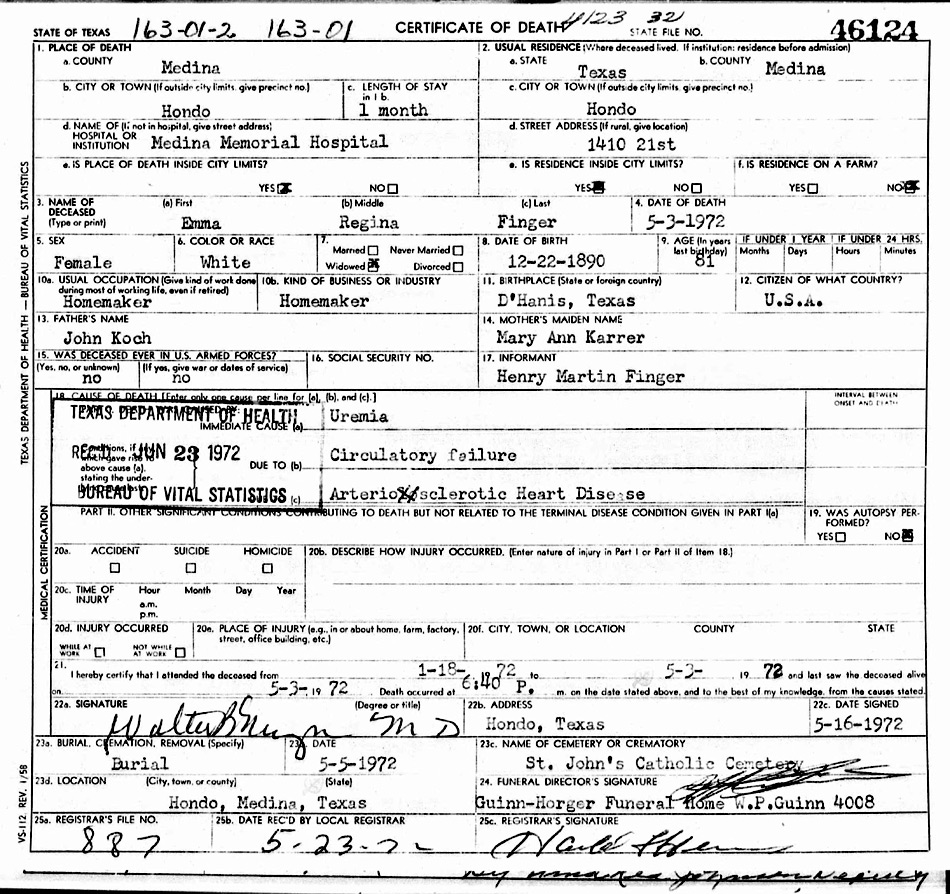 STATE OF TEXAS 163-01-2 163-01 CERTIFICATE OF DEATH 4123 32 STATE FILE NO. 46124
1. PLACE OF DEATH
a. COUNTY Medina
2. USUAL RESIDENCE (Where deceased lived. If institution: residence before admission)
a. STATE Texas b. COUNTY Medina
b. CITY OR TOWN (If outside city limits, give precinct no.) Hondo
c. LENGTH OF STAY in 1 b. 1 month
c. CITY OR TOWN (If outside city limits, give precinct no.) Hondo
d. NAME OF (If not in hospital, give street address) HOSPITAL OR INSTITUTION Medina Memorial Hospital
d. STREET ADDRESS (If rural, give location) 1410 21st
e. IS PLACE OF DEATH INSIDE CITY LIMITS? YES NO
e. IS RESIDENCE INSIDE CITY LIMITS? YES NO
f. IS RESIDENCE ON A FARM? YES NO
3. NAME OF DECEASED (Type or print)
(a) First Emma
(b) Middle Regina
(c) Last Finger
4. DATE OF DEATH 5-3-1972
5. SEX Female
6. COLOR OR RACE White
7. Married Never Married Widowed Divorced
8. DATE OF BIRTH 12-22-1890
9. AGE (In years last birthday) 81
IF UNDER 1 YEAR Months Days
IF UNDER 24 HRS. Hours Minutes
10a. USUAL OCCUPATION (Give kind of work done during most of working life, even if retired) Homemaker
10b. KIND OF BUSINESS OR INDUSTRY Homemaker
11. BIRTHPLACE (State or foreign country) D'Hanis, Texas
12. CITIZEN OF WHAT COUNTRY? U.S.A.
13. FATHER'S NAME John Koch
14. MOTHER'S MAIDEN NAME Mary Ann Karrer
15. WAS DECEASED EVER IN U.S. ARMED FORCES?
(Yes, no, or unknown) no
(If yes, give war or dates of service) no
16. SOCIAL SECURITY NO.
17. INFORMANT Henry Martin Finger
18. CAUSE OF DEATH [Enter only one cause per line for (a), (b), and (c).]
INTERVAL BETWEEN ONSET AND DEATH
TEXAS DEPARTMENT OF HEALTH
REC'D JUN 23 1972
BUREAU OF VITAL STATISTICS
IMMEDIATE CAUSE (a) Uremia
Conditions, if
which gave rise to
above cause (a),
stating the under-
DUE TO (b) Circulatory failure
(c) Arteriosclerotic Heart Disease
PART II. OTHER SIGNIFICANT CONDITIONS CONTRIBUTING TO DEATH BUT NOT RELATED TO THE TERMINAL DISEASE CONDITION GIVEN IN PART I(a)
19. WAS AUTOPSY PERFORMED? YES NO
20a. ACCIDENT SUICIDE HOMICIDE
20b. DESCRIBE HOW INJURY OCCURRED. (Enter nature of injury in Part I or Part II of Item 18.)
20c. TIME OF INJURY Hour a.m. p.m. Month Day Year
20d. INJURY OCCURRED WHILE AT WORK NOT WHILE AT WORK
20e. PLACE OF INJURY (e.g., in or about home, farm, factory, street, office building, etc.)
20f. CITY, TOWN, OR LOCATION COUNTY STATE
21. I hereby certify that I attended the deceased from 1-18- 1972 to 5-3- 1972 and last saw the deceased alive
on 5-3- 1972 Death occurred at 6:40 P. m. on the date stated above, and to the best of my knowledge, from the causes stated.
22a. SIGNATURE (Degree or title) Walter M D
22b. ADDRESS Hondo, Texas
22c. DATE SIGNED 5-16-1972
23a. BURIAL, CREMATION, REMOVAL (Specify) Burial
23b. DATE 5-5-1972
23c. NAME OF CEMETERY OR CREMATORY St. John's Catholic Cemetery
23d. LOCATION (City, town, or county) (State) Hondo, Medina, Texas
24. FUNERAL DIRECTOR'S SIGNATURE Guinn-Horger Funeral Home W.P.Guinn 4008
25a. REGISTRAR'S FILE NO. 887
25b. DATE REC'D BY LOCAL REGISTRAR 5-23-72
25c. REGISTRAR'S SIGNATURE
TEXAS DEPARTMENT OF HEALTH — BUREAU OF VITAL STATISTICS
MEDICAL CERTIFICATION
VS-112 REV. 1/58